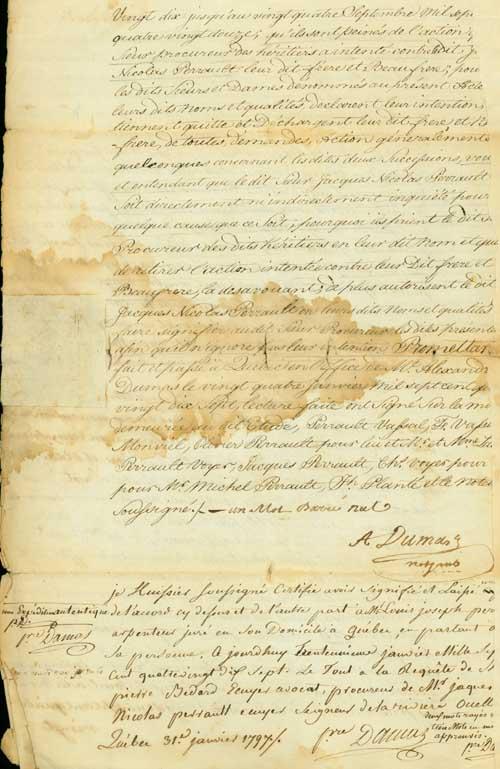 Vingt dix jusqu'au vingt quatre Septembre mil sept
quatre vingt douze; qu'ils ont peinés de l'action;
Sieur procureur des héritiers a intenté contre dit;
Nicolas Perrault leur dit frère et Beaufrere; pour
les dits Sieurs et Dames denommés au présent Acte
leurs dits Noms et qualités, declarent leur intention
tiennent quitte et Dechargent leur dit frere et B
frere, de toutes demandes, Action généralement
quelconques concernant les dites deux Successions, vou
et entendant que le dit Sieur Jacques Nicolas Perrault
Soit directement ni indirectement inquiété pour
quelque cause que ce Soit; pourquoi ils prient le dit
Procureur des dits héritiers en leur dit Nom et que
de retirer l'action intentée contre leur Dit frere et
Beaufrere, la desavouant; de plus autorisent le dit
Jacques Nicolas Perrault en leurs dits Noms et qualités
faire signifier au dit Sieur Procureur les dites presente
afin qu'il n'ignore pas leur intention Promettan
fait et passé à Quebec en l'office de Mr. Alexandr
Dumas le vingt quatre janvier mil sept cent q
vingt dix Sept, lecture faite ont Signé Sur la mi
demeurée au dit Etude, Perrault Vassal, F. Vassa
Monviel, Perrault pour lui et Mr. et Mve.
Perrault Voyer, Jacques Perrault, Chs. Voyer pour
pour Mr. Michel Perrault, Plante et le Notai
Soussigné ./. — un Mot Barré nul
A Dumas
not. pub
je Huissier Soussigné Certifie avoir Signifié et Laissé
de l'accord cy dessus et de l'autre part à Mr. Louis joseph
arpenteur juré en Son Domicile à Quebec en parlant a
Sa personne. A jourdhuy trenteunieme janvier Mille Se
Cent quatrevingt dix Sept. Le Tout a la Requête de
pierre Bedard Ecuyer avocat, procureur de Mr. jaques
Nicolas perrault ecuyer Seigneur de la riviere Ouell
Quebec 31e. janvier 1797 ./.
pre Damus
deux mots rayés
trois Mots en
approuvés.
pre Da
une Expédition autentique
pre. D.
pre Damus